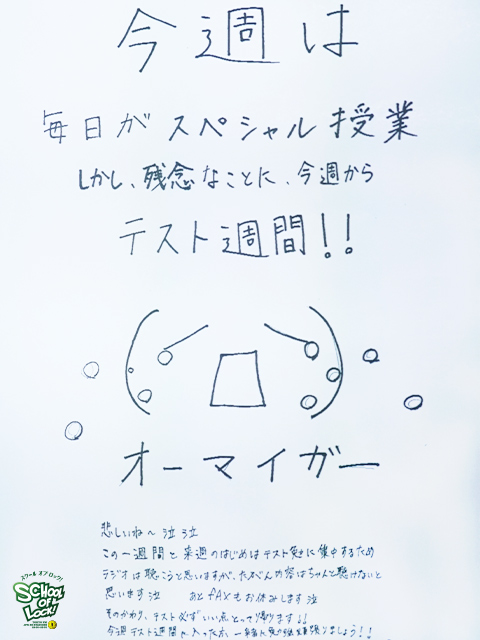 今週は
毎日がスペシャル授業
しかし、残念なことに、今週から
テスト週間!!
オーマイガー
悲しいね〜泣泣
この一週間と来週のはじめはテスト勉強に集中するため
ラジオは聴こうと思いますが、たぶん内容はちゃんと聴けないと
思います泣 あとfAXもお休みします泣
そのかわり、テスト必ずいい点とって帰ります!!
今週テスト週間に入った方、一緒に頑張りましょう!!
スクール オブ ロック!
SCHOOL OF LOCK!